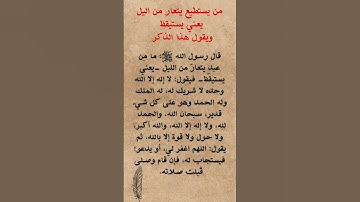 من يستطيع يتعار من اليل
يعني يستيقظ
ويقول هذا الذكر
قال رسول الله ﷺ: ما من
عبدٍ يتعارّ من الليل -يعني
يستيقظ- فيقول: لا إله إلا الله
وحده لا شريك له، له الملك
وله الحمد وهو على كل شيء
قدير، سبحان الله، والحمد
لله، ولا إله إلا الله، والله أكبر،
ولا حول ولا قوة إلا بالله، ثم
يقول: اللهم اغفر لي، أو يدعو؛
فيستجاب له، فإن قام وصلى
قبلت صلاته.